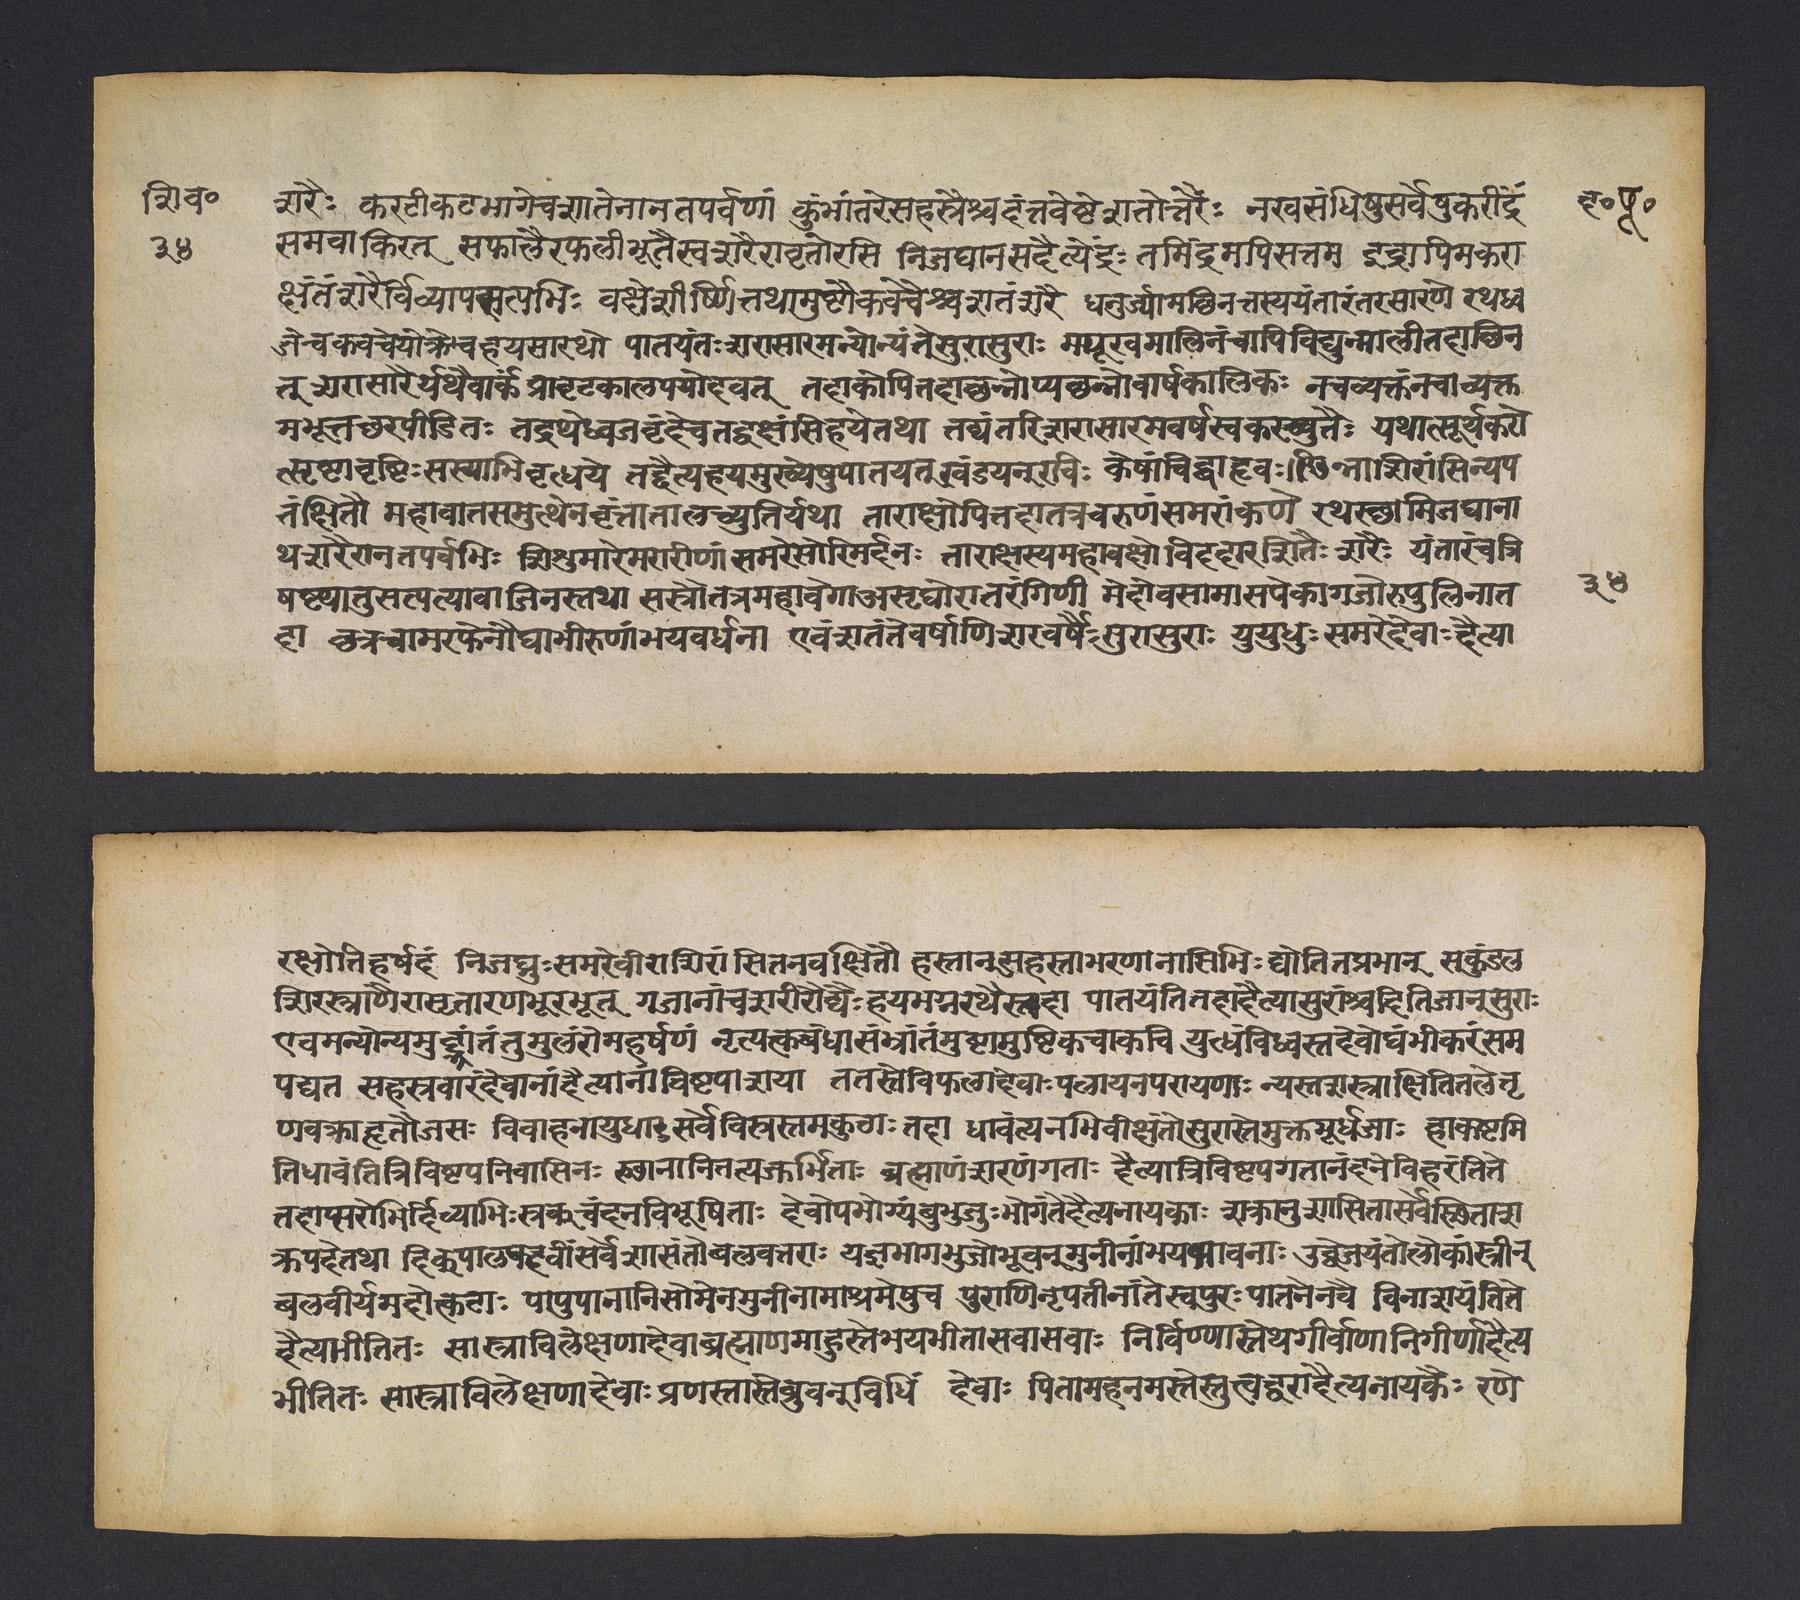 शिव॰
३४
ह॰पू॰
शरैः करटीकटभागेचशतेनानतपर्वणां कुंभांतरेसहस्त्रैश्चदंत्तवेष्टेशतोत्तरैः नखसंधिषुसर्वेषुकरींद्रं
समवाकिरत् सफालैरफलीभूतैस्वशरैरावृतोरसि निजघानसदैत्येंद्रः तमिंद्रमपिसत्तम इंद्रापिमकरा
क्षंतंशरैर्विव्यापसप्तभिः वक्षेशीर्ष्णितथामुष्टौकवचैश्चशतंशरै धनुर्ज्यामछिनत्तस्ययंतारंतरसारणे रथध्व
जेचकवचेयोक्रेचहयसारथो पातयंतःशरासारमन्योन्यंतेसुरासुराः मयूरवमालिनंचापिविद्युन्मालीतदाछिन
त् शरासारैर्यथैवार्कंप्रावृटकालपयोदवत् तदाकोपितदाछन्नोप्यछन्नोवार्षकालिकः नचव्यक्तंनचाव्यक्त
मभूत्तछरपीडितः तद्रथेध्वजवृंदेचतद्वक्षंसिहयेतथा तव्यंतरिशरासारमवर्षस्वकरच्युतैः यथात्सूर्यकरो
त्सृष्टावृष्टिःसस्याभिवृत्धये तद्दैत्यहयमुख्येषुपातयत्खंडयन्रविः केषांचिद्बाहवःछिन्नाशिरांसिन्यप
तंक्षितौ महावातसमुत्थेनवृंत्तातालच्युतिर्यथा ताराक्षोपितदातत्रवरुणंसमरांकणे रथस्छामिजघाना
थशरैरानतपर्वभिः शिशुमारेमरारीणांसमरेसोरिमर्दनः ताराक्षस्यमहावक्षोविददारशितैःशरैः यंतारंचत्रि
षष्ट्यातुसत्पत्यावाजिनस्तथा सस्त्रौतत्रमहावेगाअसृघोरातरंगिणी मेदोवसामासपेकागजोरुपुलिनात
३४
दा छत्रचामरफेनौघाभीरुणांभयवर्धना एवंशतंतेवर्षाणिशरवर्षैःसुरासुराः युयुधुःसमरेदेवाःदैत्या
रक्षोतिहर्षदं निजघ्नुःसमरेवीराशिरांसितनवक्षितौ हस्तान्सहस्ताभरणानासिभिःद्योतितप्रभान् सकुंडल
शिरस्त्राणैरासृतारणभूरभूत् गजानांचशरीरौघैःहयमग्नरथैस्तदा पातयंतितदादैत्यासुरांश्चदितिजान्सुराः
एवमन्योन्यमुद्भ्रांतंतुमुलंरोमहर्षणं नृत्यत्कबंधासंभ्रांतंमुष्टामुष्टिकचाकचि युत्धंविध्वस्तदेवोघंभीकरंसम
पद्यत सहस्त्रवारंदेवानांदैत्यानांविष्टपाशया ततस्तेविफलादेवाःपलायनपरायणाः न्यस्तशस्त्राक्षितितलेतृ
णवक्राहृतौजसः विवाहनायुधाःसर्वेविस्त्रस्तमकुटाः तदा धावंत्यनभिवीक्षंतोसुरास्तेमुक्तमूर्धजाः हाकष्टमि
तिधावंतित्रिविष्टपनिवासिनः छानानितत्यक्तर्भिताः ब्रह्माणंशरणंगताः दैत्यात्रिविष्टपगतानंदनेविहरंतिते
तदाप्सरोभिर्दिव्याभिःस्त्रक्चंदनविभूषिताः देवोपभोग्यंबुभुजुःभोगंतेदैत्यनायकाः शक्रानुशासितासर्वेस्छितारा
क्रपदेतथा दिक्पालपदवींसर्वेशासंतोबलवत्तराः यज्ञभागभुजोभूवन्मुनीनांभयभावनाः उद्वेजयंतोलोकांस्त्रीन्
बलवीर्यमदोत्कटाः पापुपानानिसोमेनमुनीनामाश्रमेषुच पुराणिनृपतीनांतेस्वपुरःपातनेनवै विनाशयंतिते
दैत्याभीतितः सास्त्राविलेक्षणादेवाब्रह्माणमाहुस्तेभयभीतासवासवाः निर्विण्णास्तेथगीर्वाणानिगीर्णादैत्य
भीतितः सास्त्राविलेक्षणादेवाः प्रणस्तास्तेब्रुवन्विधिं देवाः पितामहनमस्तेस्तुत्वद्वरादैत्यनायकैः रणे